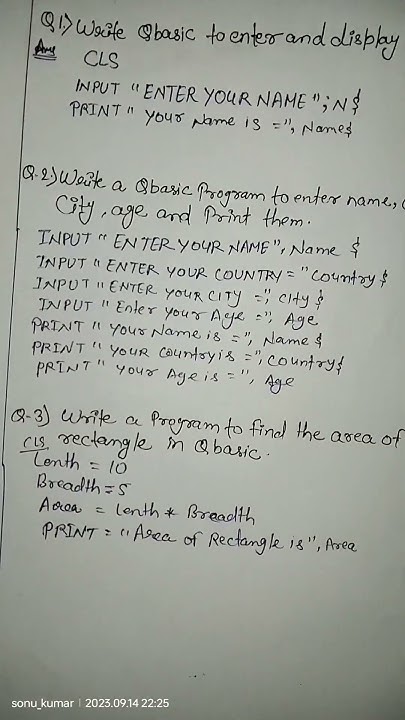 Q1) Write Qbasic to enter and display
Ans CLS
INPUT "ENTER YOUR NAME"; N$
PRINT "Your Name is =", Name$
Q.2) Write a Qbasic Program to enter name,
City, age and Print them.
INPUT "ENTER YOUR NAME", Name $
INPUT "ENTER YOUR COUNTRY = "Country $
INPUT "ENTER YOUR CITY =", City $
INPUT "Enter your Age =", Age
PRINT "Your Name is =", Name $
PRINT "YOUR Country is =", Country$
PRINT "Your Age is =", Age
Q-3) Write a Program to find the area of
CLS rectangle in Qbasic.
Lenth = 10
Breadth = 5
Area = Lenth * Breadth
PRINT = "Area of Rectangle is", Area
sonu_kumar | 2023.09.14 22:25